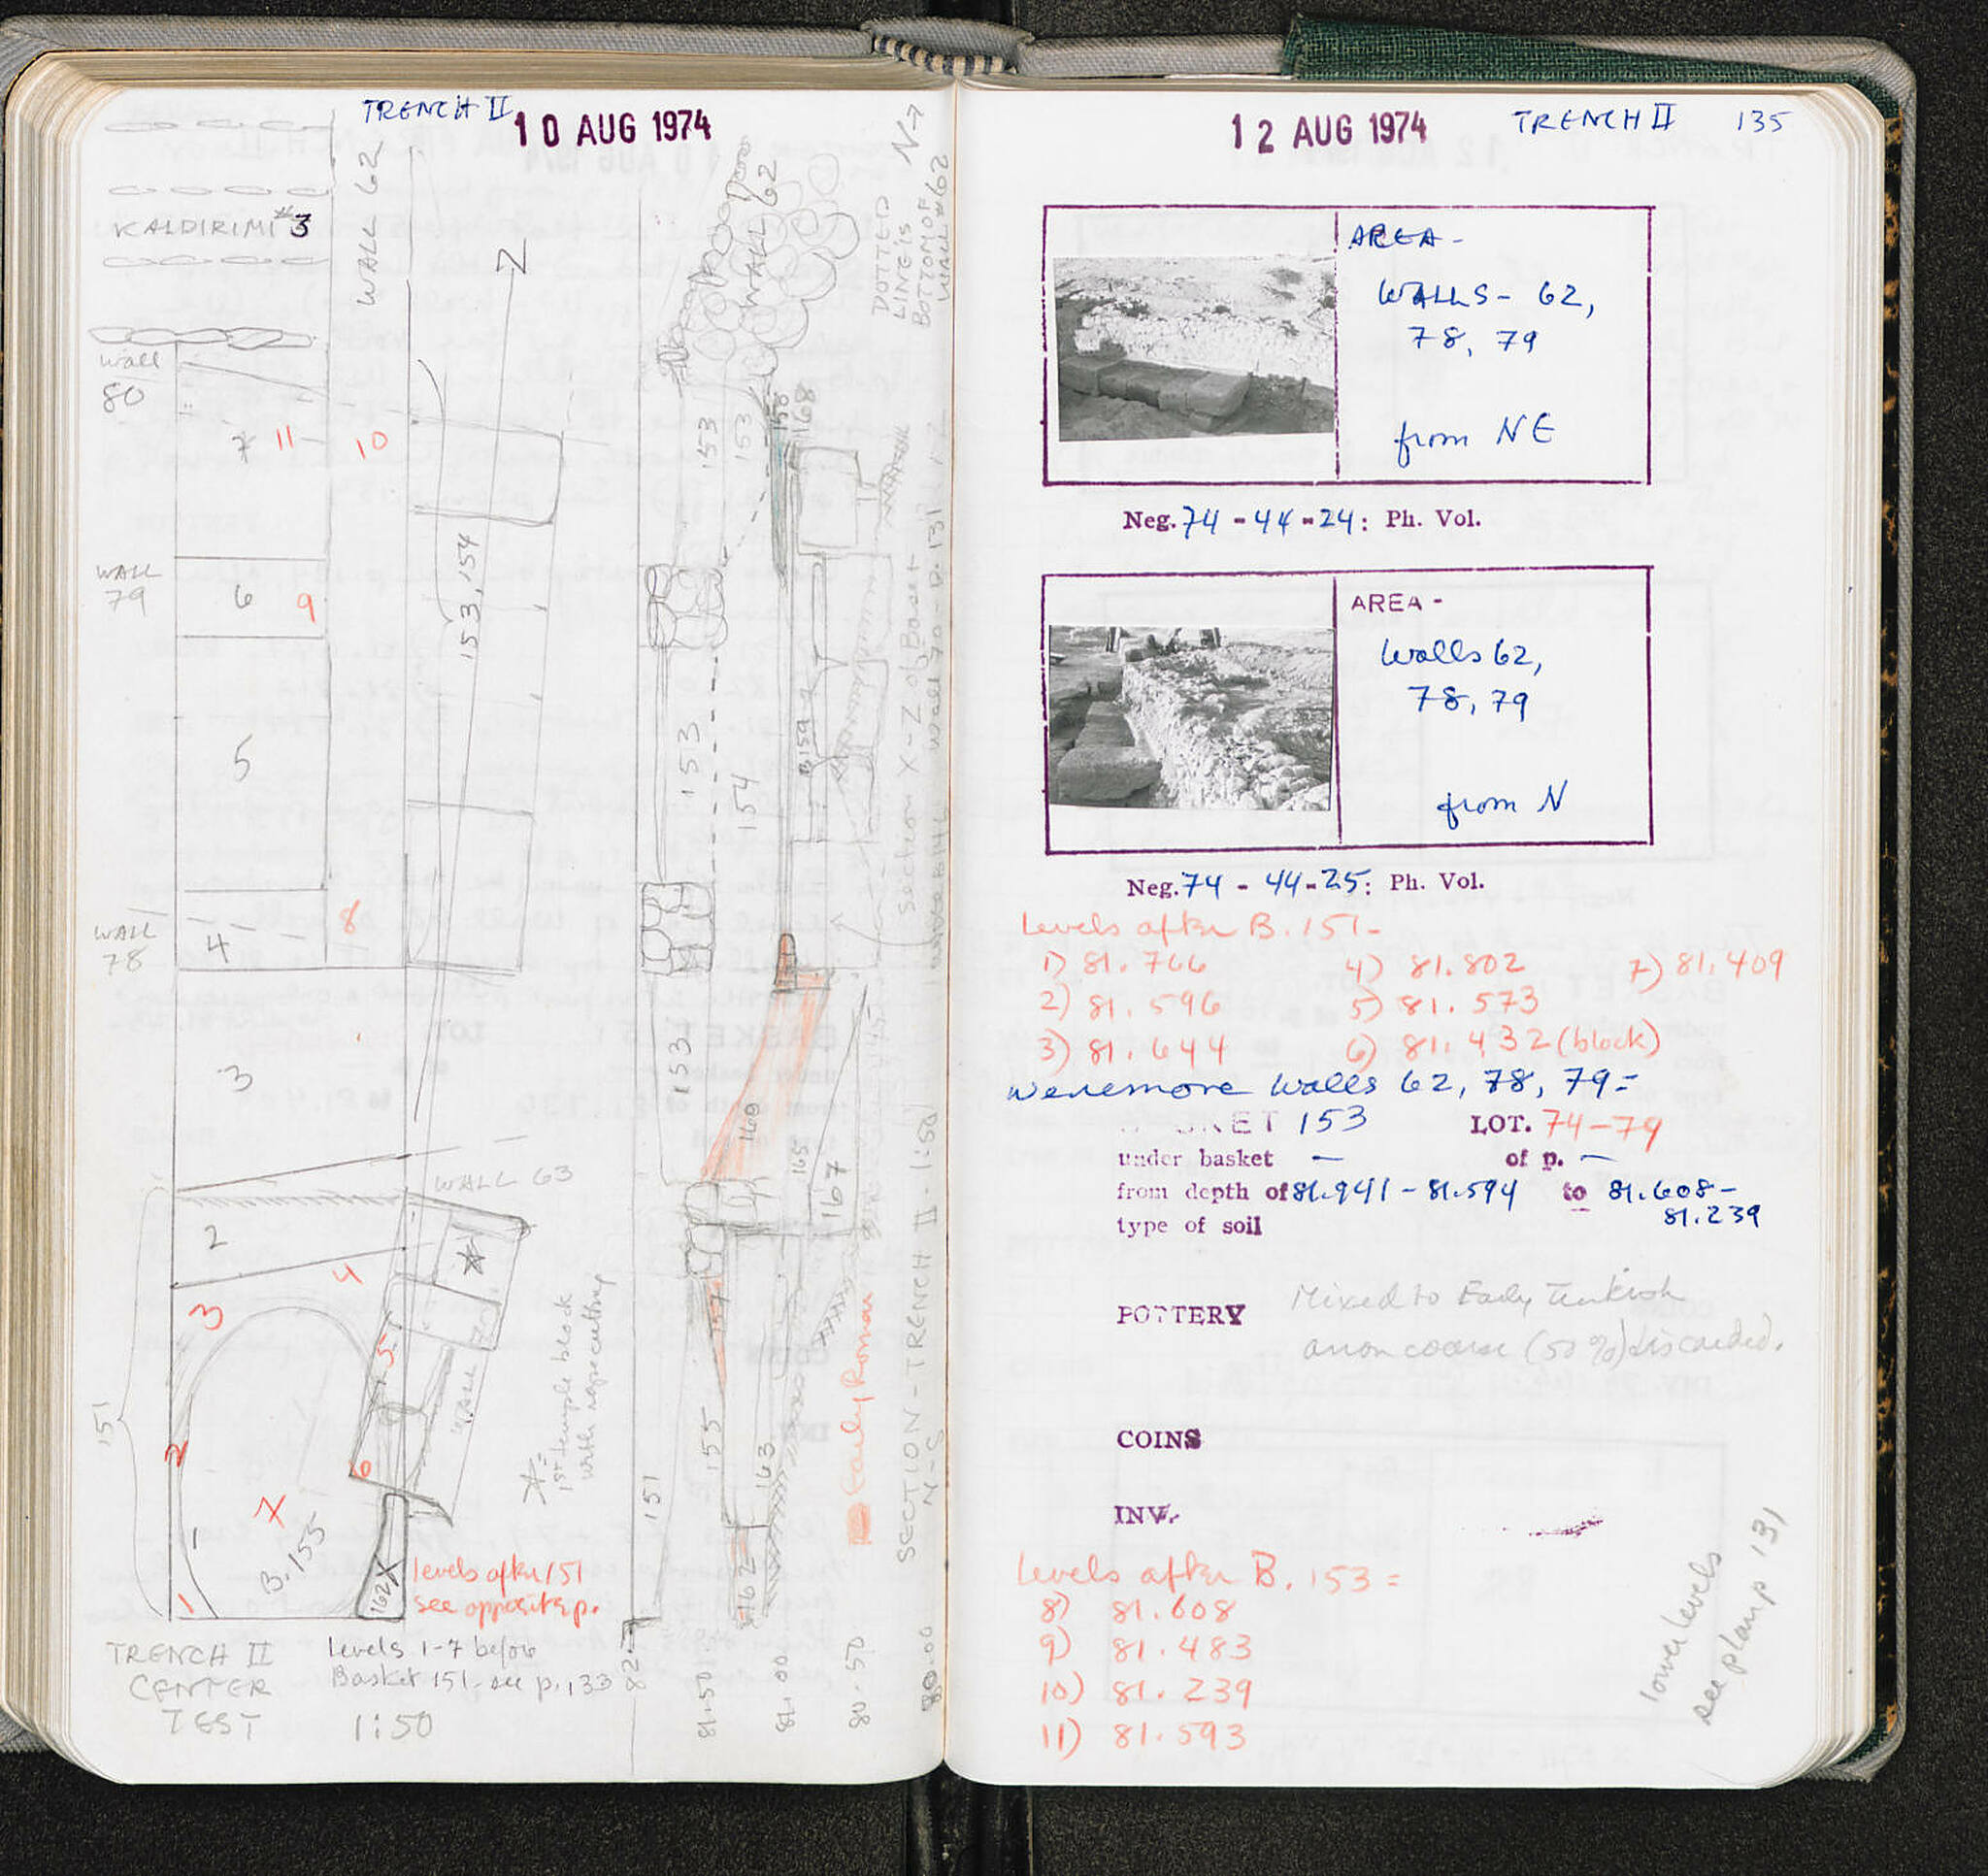 TRENCH II
10 AUG 1974
WALL 62
KALDIRIMI #3
Z
Wall
80
7 11 10
WALL
79
6 9
153, 154
5
WALL
78
4 8
3
WALL 63
2
4
3
5
151
2
6
7
B. 155
1
162 X
WALL 72
* =
1st temple block
with
levels after 151
see opposite p.
TRENCH II
CENTER
TEST
Levels 1-7 before
Basket 151 - see p. 133
1:50
N→
WALL 62
DOTTED
LINE is
BOTTOM OF
WALL #62
153
153
150
168
153
154
B159
153
160
165
167
157
155
163
151
162
Early Roman
Section X-Z of Basket
SECTION - TRENCH II - 1:50
N-S
81.50
81.00
80.50
80.00
12 AUG 1974
TRENCH II 135
AREA -
WALLS - 62,
78, 79
from NE
Neg. 74 - 44 - 24: Ph. Vol.
AREA -
Walls 62,
78, 79
from N
Neg. 74 - 44 - 25: Ph. Vol.
Levels after B. 151 -
1) 81.766 4) 81.802 7) 81.409
2) 81.596 5) 81.573
3) 81.644 6) 81.432 (block)
We remove walls 62, 78, 79 =
KET 153 LOT. 74-79
under basket — of p. —
from depth of 81.941 - 81.594 to 81.608 -
81.239
type of soil
POTTERY Mixed to Early Turkish
coarse (50%) discarded.
COINS
INV.
Levels after B. 153 =
8) 81.608
9) 81.483
10) 81.239
11) 81.593
lower levels
see plan p 131